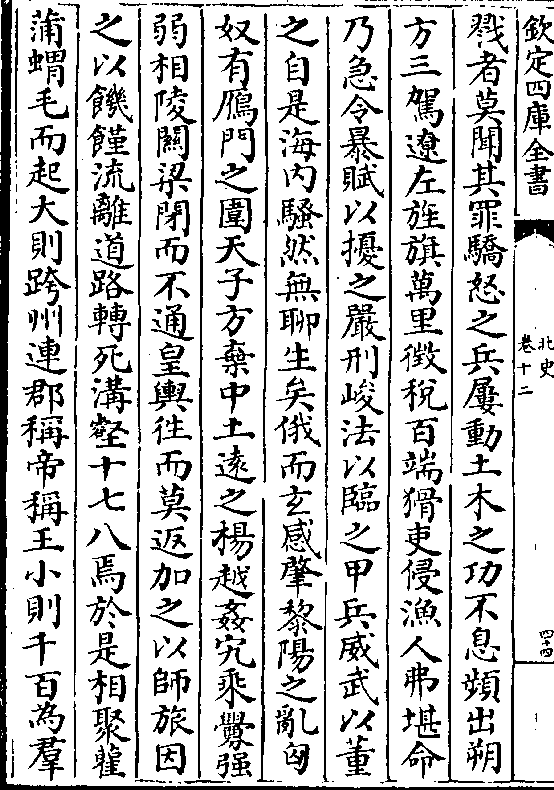 欽定四庫全書
北史
卷十二
四十四
戮者莫聞其罪驕怒之兵屢動土木之功不息頻出朔
方三駕遼左旌旗萬里徴稅百端猾吏侵漁人弗堪命
乃急令暴賦以擾之嚴刑峻法以臨之甲兵威武以董
之自是海內騷然無聊生矣俄而玄感肇黎陽之亂匈
奴有鴈門之圍天子方棄中土逺之楊越姦宄乘釁强
弱相陵關梁閉而不通皇輿徃而莫返加之以師旅因
之以饑饉流離道路轉死溝壑十七八焉於是相聚雚
蒲蝟毛而起大則跨州連郡稱帝稱王小則千百為羣